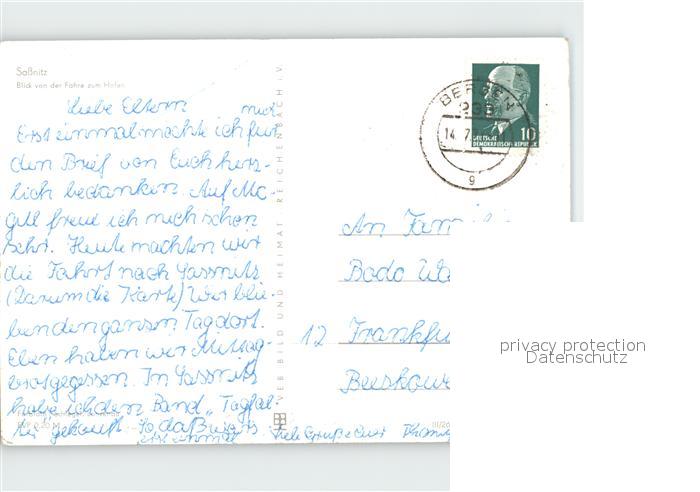 Saßnitz
Blick von der Fähre zum Hafen
Liebe Eltern
Erst einmal möchte ich für
mich
den Brief von Euch herz-
lich bedanken. Auf Mo-
gli freue ich mich schon
sehr. Heute machten wir
die Fahrt nach Sassnitz
(Darum die Karte) Wir blie-
ben den ganzen Tag dort.
Eben haben wir Mittag-
gegessen. In Sassnitz
habe ich den Band „Tagfal-
ter" gekauft. So das wars
erst einmal Viele Grüße Euer Thomas
EVP 0,20 M
VEB BILD UND HEIMAT REICHENBACH i.V.
BERGEN
14. 7.
g
10
DEUTSCHE
DEMOKRATISCHE REPUBLIK
An Famili
Bodo Wa
12 Frankfu
Beeskowe
privacy protection
Datenschutz